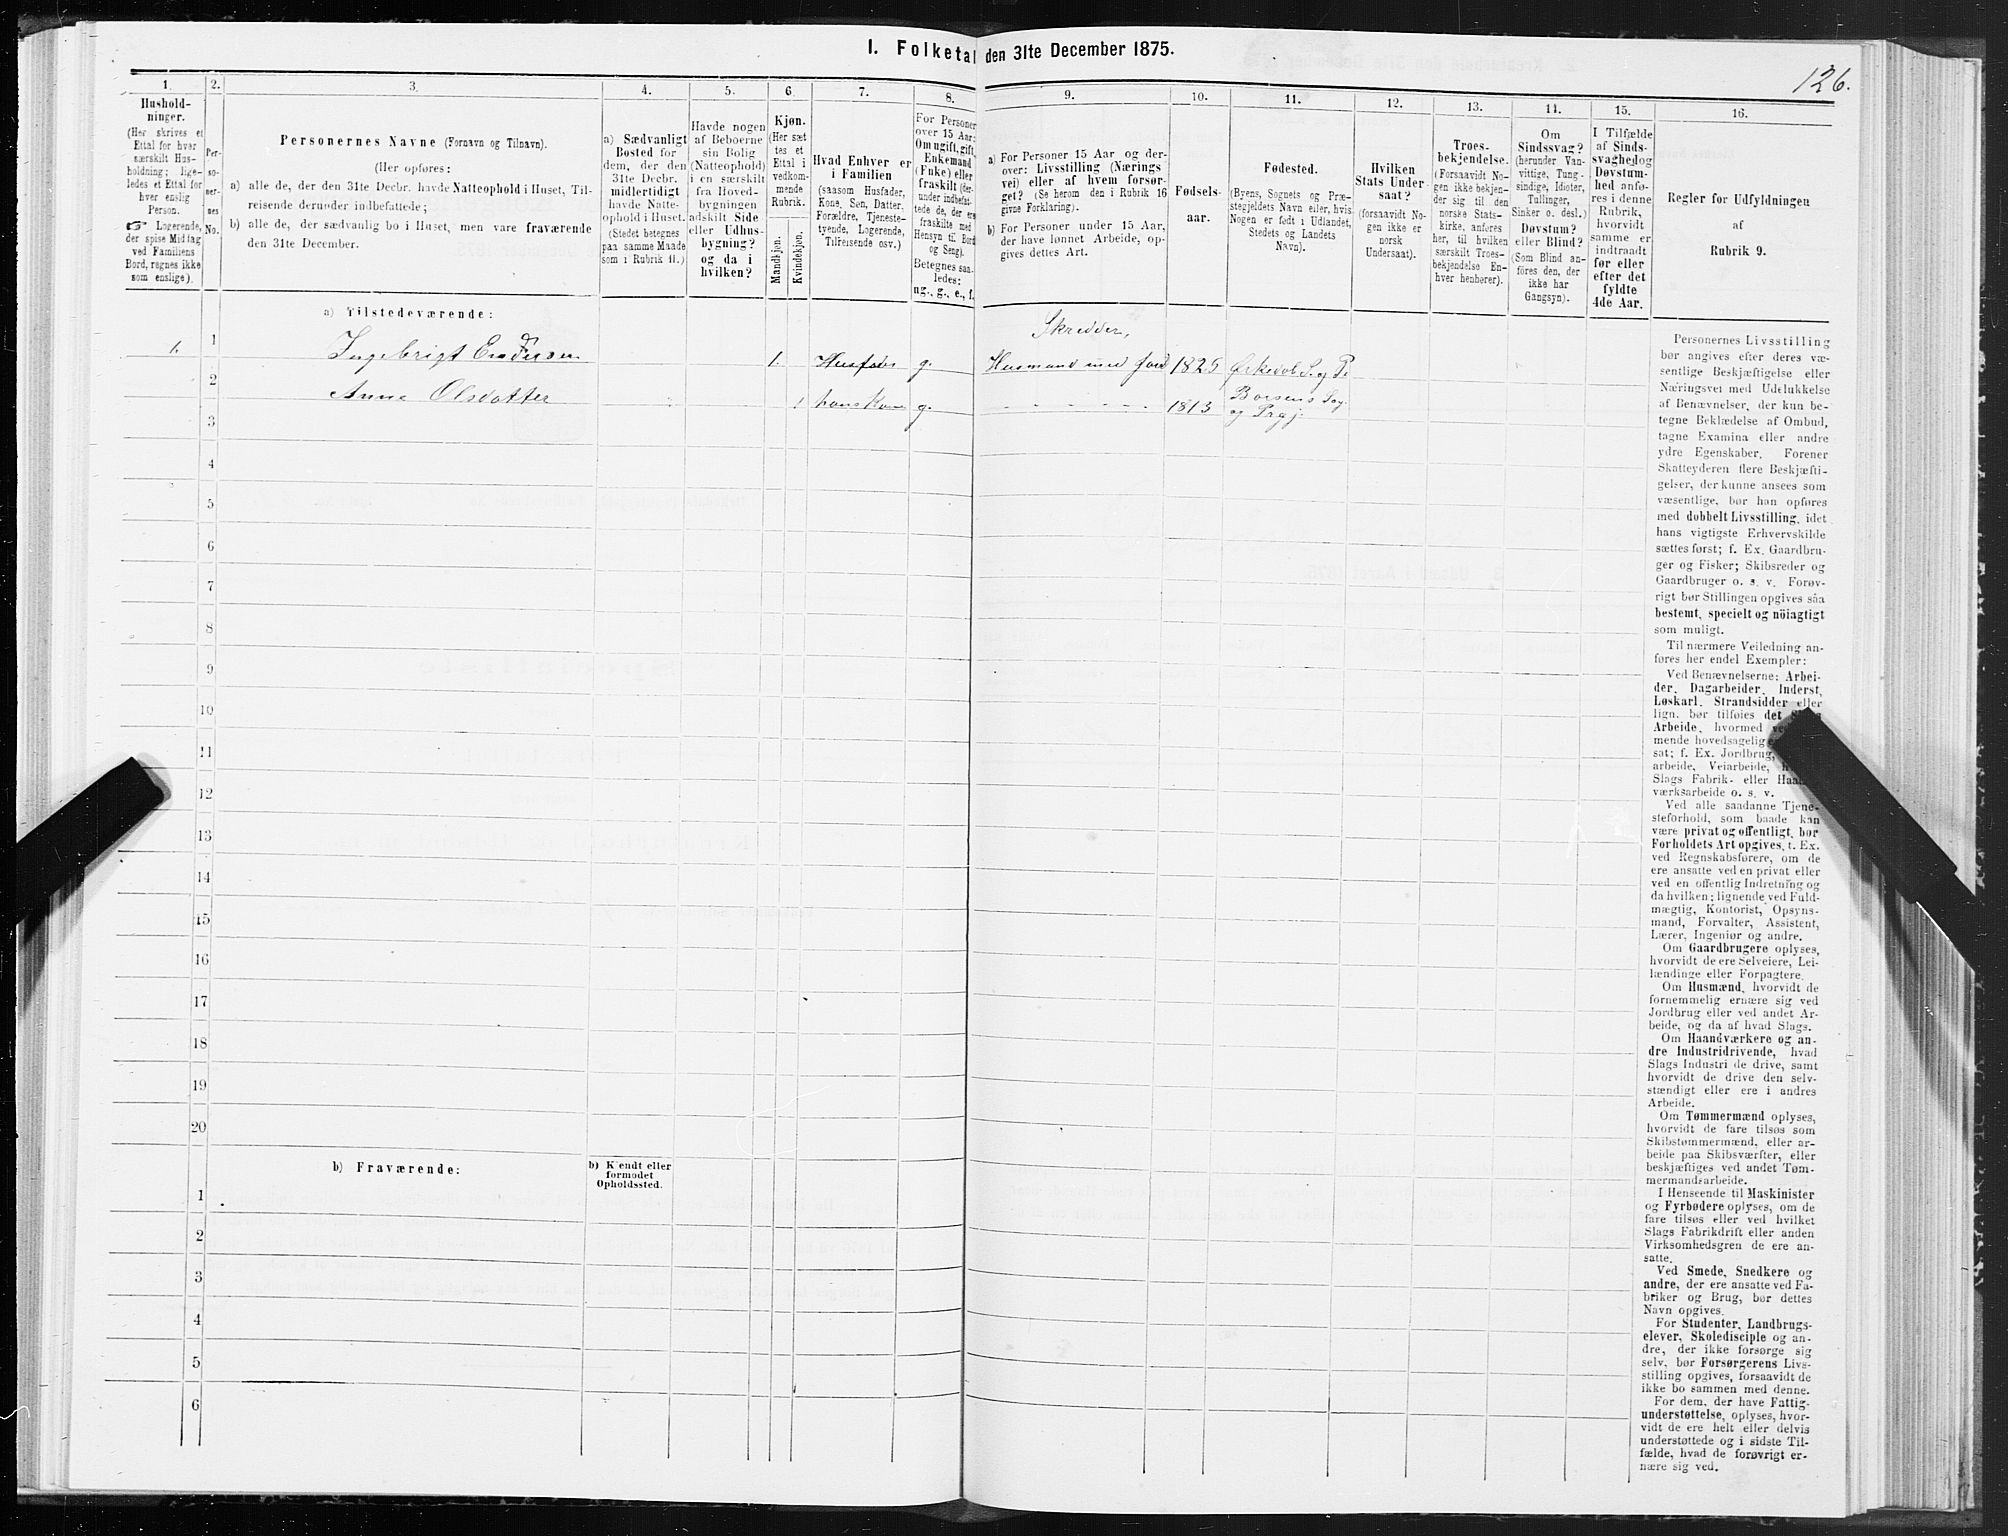 I. Folketal den 31te December 1875.
126.
1.
2.
3.
4.
5.
6.
7.
8.
9.
10.
11.
12.
13.
14.
15.
16.
Hushold-
ninger.
(Her skrives et
Ettal for hver
særskilt Hus-
holdning; lige-
ledes et Ettal for
hver enslig
Person.
☞ Logerende,
der spise Middag
ved Familiens
Bord, regnes ikke
som enslige).
Per-
so-
ner-
nes
No.
Personernes Navne (Fornavn og Tilnavn).
(Her opføres:
a) alle de, der den 31te Decbr. havde Natteophold i Huset, Til-
reisende derunder indbefattede;
b) alle de, der sædvanlig bo i Huset, men vare fraværende
den 31te December.
a) Sædvanligt
Bosted for
dem, der den
31te Decbr.
midlertidigt
havde Natte-
ophold i Huset.
(Stedet betegnes
paa samme Maade
som i Rubrik 11.)
Havde nogen
af Beboerne
sin Bolig
(Natteophold)
i en særskilt
fra Hoved-
bygningen
adskilt Side
eller Udhus-
bygning?
og da i
hvilken?
Kjøn.
(Her sæt
tes et
Ettal i
vedkom-
mende
Rubrik.
Mandkjøn.
Kvindekjøn.
Hvad Enhver er
i Familien
(saasom Husfader,
Kone, Søn, Datter,
Forældre, Tjeneste-
tyende, Logerende,
Tilreisende osv.)
For Personer
over 15 Aar:
Om ugift, gift,
Enkemand
(Enke) eller
fraskilt (der-
under indbefat-
tede de, der ere
fraskilte med
Hensyn til Bord
og Seng).
Betegnes saa-
ledes:
ug., g., e., f.
a) For Personer 15 Aar og der-
over: Livsstilling (Nærings
vei) eller af hvem forsør-
get? (Se herom den i Rubrik 16
givne Forklaring).
b) For Personer under 15 Aar,
der have lønnet Arbeide, op-
gives dettes Art.
Fødsels-
aar.
Fødested.
(Byens, Sognets og Præ-
stegjeldets Navn eller, hvis
Nogen er født i Udlandet,
Stedets og Landets
Navn).
Hvilken
Stats Under
saat?
(forsaavidt No-
gen ikke er
norsk
Undersaat).
Troes-
bekjendelse.
(Forsaavidt No-
gen ikke bekjen-
der sig til den
norske Stats-
kirke, anføres
her, til hvilken
særskilt Troes-
bekjendelse En-
hver henhører).
Om
Sindssvag?
(herunder Van-
vittige, Tung-
sindige, Idioter,
Tullinger,
Sinker o. desl.)
Døvstum?
eller Blind?
(Som Blind an-
føres den, der
ikke har
Gangsyn).
I Tilfælde
af Sinds-
svaghed og
Døvstum-
hed anfø-
res i denne
Rubrik,
hvorvidt
samme er
indtraadt
før eller
efter det
fyldte
4de Aar.
Regler for Udfyldningen
af
Rubrik 9.
a) Tilstedeværende:
Skredder,
1. 1 Ingebrigt Endersen 1. Husfader g. Husmand med Jord 1825 Ørkedal S. og P.
2 Anne Olsdatter 1 hans Kone g. - - - - - - 1813 Borsens Sog.
og Præj.
3
4
5
6
7
8
9
10
11
12
13
14
15
16
17
18
19
20
b) Fraværende:
b) Kjendt eller
formodet
Opholdssted.
1
2
3
4
5
6
Personernes Livsstilling
bør angives efter deres væ-
sentlige Beskjæftigelse eller
Næringsvei med Udelukkelse
af Benævnelser, der kun be-
tegne Beklædelse af Ombud,
tagne Examina eller andre
ydre Egenskaber. Forener
Skatteyderen flere Beskjæfti-
gelser, der kunne ansees som
væsentlige, bør han opføres
med dobbelt Livsstilling, idet
hans vigtigste Erhvervskilde
sættes først; f. Ex. Gaardbru-
ger og Fisker; Skibsreder og
Gaardbruger o. s. v. Forøv-
rigt bør Stillingen opgives saa
bestemt, specielt og nöiagtigt
som muligt.
Til nærmere Veiledning an-
føres her endel Exempler:
Ved Benævnelserne: Arbei-
der, Dagarbeider, Inderst,
Løskarl, Strandsidder eller
lign. bør tilføies det
Arbeide, hvormed
mende hovedsagelig
sat; f. Ex. Jordbrug,
arbeide, Veiarbeide,
Slags Fabrik- eller
værksarbeide o. s. v.
Ved alle saadanne Tjene-
steforhold, som baade kan
være privat og offentligt, bør
Forholdets Art opgives, f. Ex.
ved Regnskabsførere, om de
ere ansatte ved en privat eller
ved en offentlig Indretning og
da hvilken; lignende ved Fuld-
mægtig, Kontorist, Opsyns-
mand, Forvalter, Assistent,
Lærer, Ingeniør og andre.
Om Gaardbrugere oplyses,
hvorvidt de ere Selveiere, Lei-
lændinge eller Forpagtere.
Om Husmænd, hvorvidt de
fornemmelig ernære sig ved
Jordbrug eller ved andet Ar-
beide, og da af hvad Slags.
Om Haandværkere og an-
dre Industridrivende, hvad
Slags Industri de drive, samt
hvorvidt de drive den selv-
stændigt eller ere i andres
Arbeide.
Om Tømmermænd oplyses,
hvorvidt de fare tilsøs som
Skibstømmermænd, eller ar-
beide paa Skibsværfter, eller
beskjæftiges ved andet Tøm-
mermandsarbeide.
I Henseende til Maskinister
og Fyrbødere oplyses, om de
fare tilsøs eller ved hvilket
Slags Fabrikdrift eller anden
Virksomhedsgren de ere an-
satte.
Ved Smede, Snedkere og
andre, der ere ansatte ved Fa-
briker og Brug, bør dettes
Navn opgives.
For Studenter, Landbrugs-
elever, Skoledisciple og an-
dre, der ikke forsørge sig
selv, bør Forsørgerens Livs-
stilling opgives, forsaavidt de
ikke bo sammen med denne.
For dem, der have Fattig-
understøttelse, oplyses, hvor-
vidt de ere helt eller delvis
understøttede og i sidste Til-
fælde, hvad de forøvrigt er-
nære sig ved.